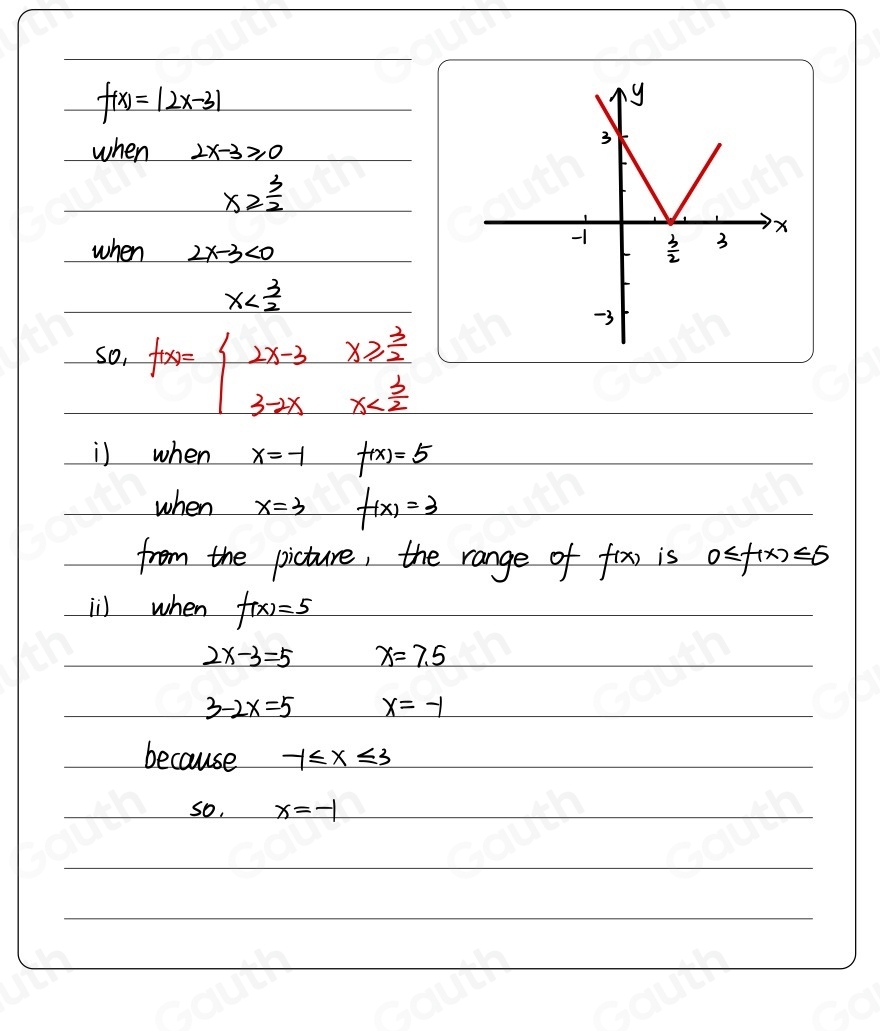 f(x) = |2x-3|
when 2x-3≥0
x≥3/2
when 2x-3<0
x<3/2
so, f(x)= { 2x-3 x≥3/2
3-2x x<3/2
y
3
-1 3/2 3 x
-3
i) when x=-1 f(x)=5
when x=3 f(x)=3
from the picture, the range of f(x) is 0≤f(x)≤5
ii) when f(x)=5
2x-3=5 x=7.5
3-2x=5 x=-1
because -1≤x≤3
so. x=-1
Gauth